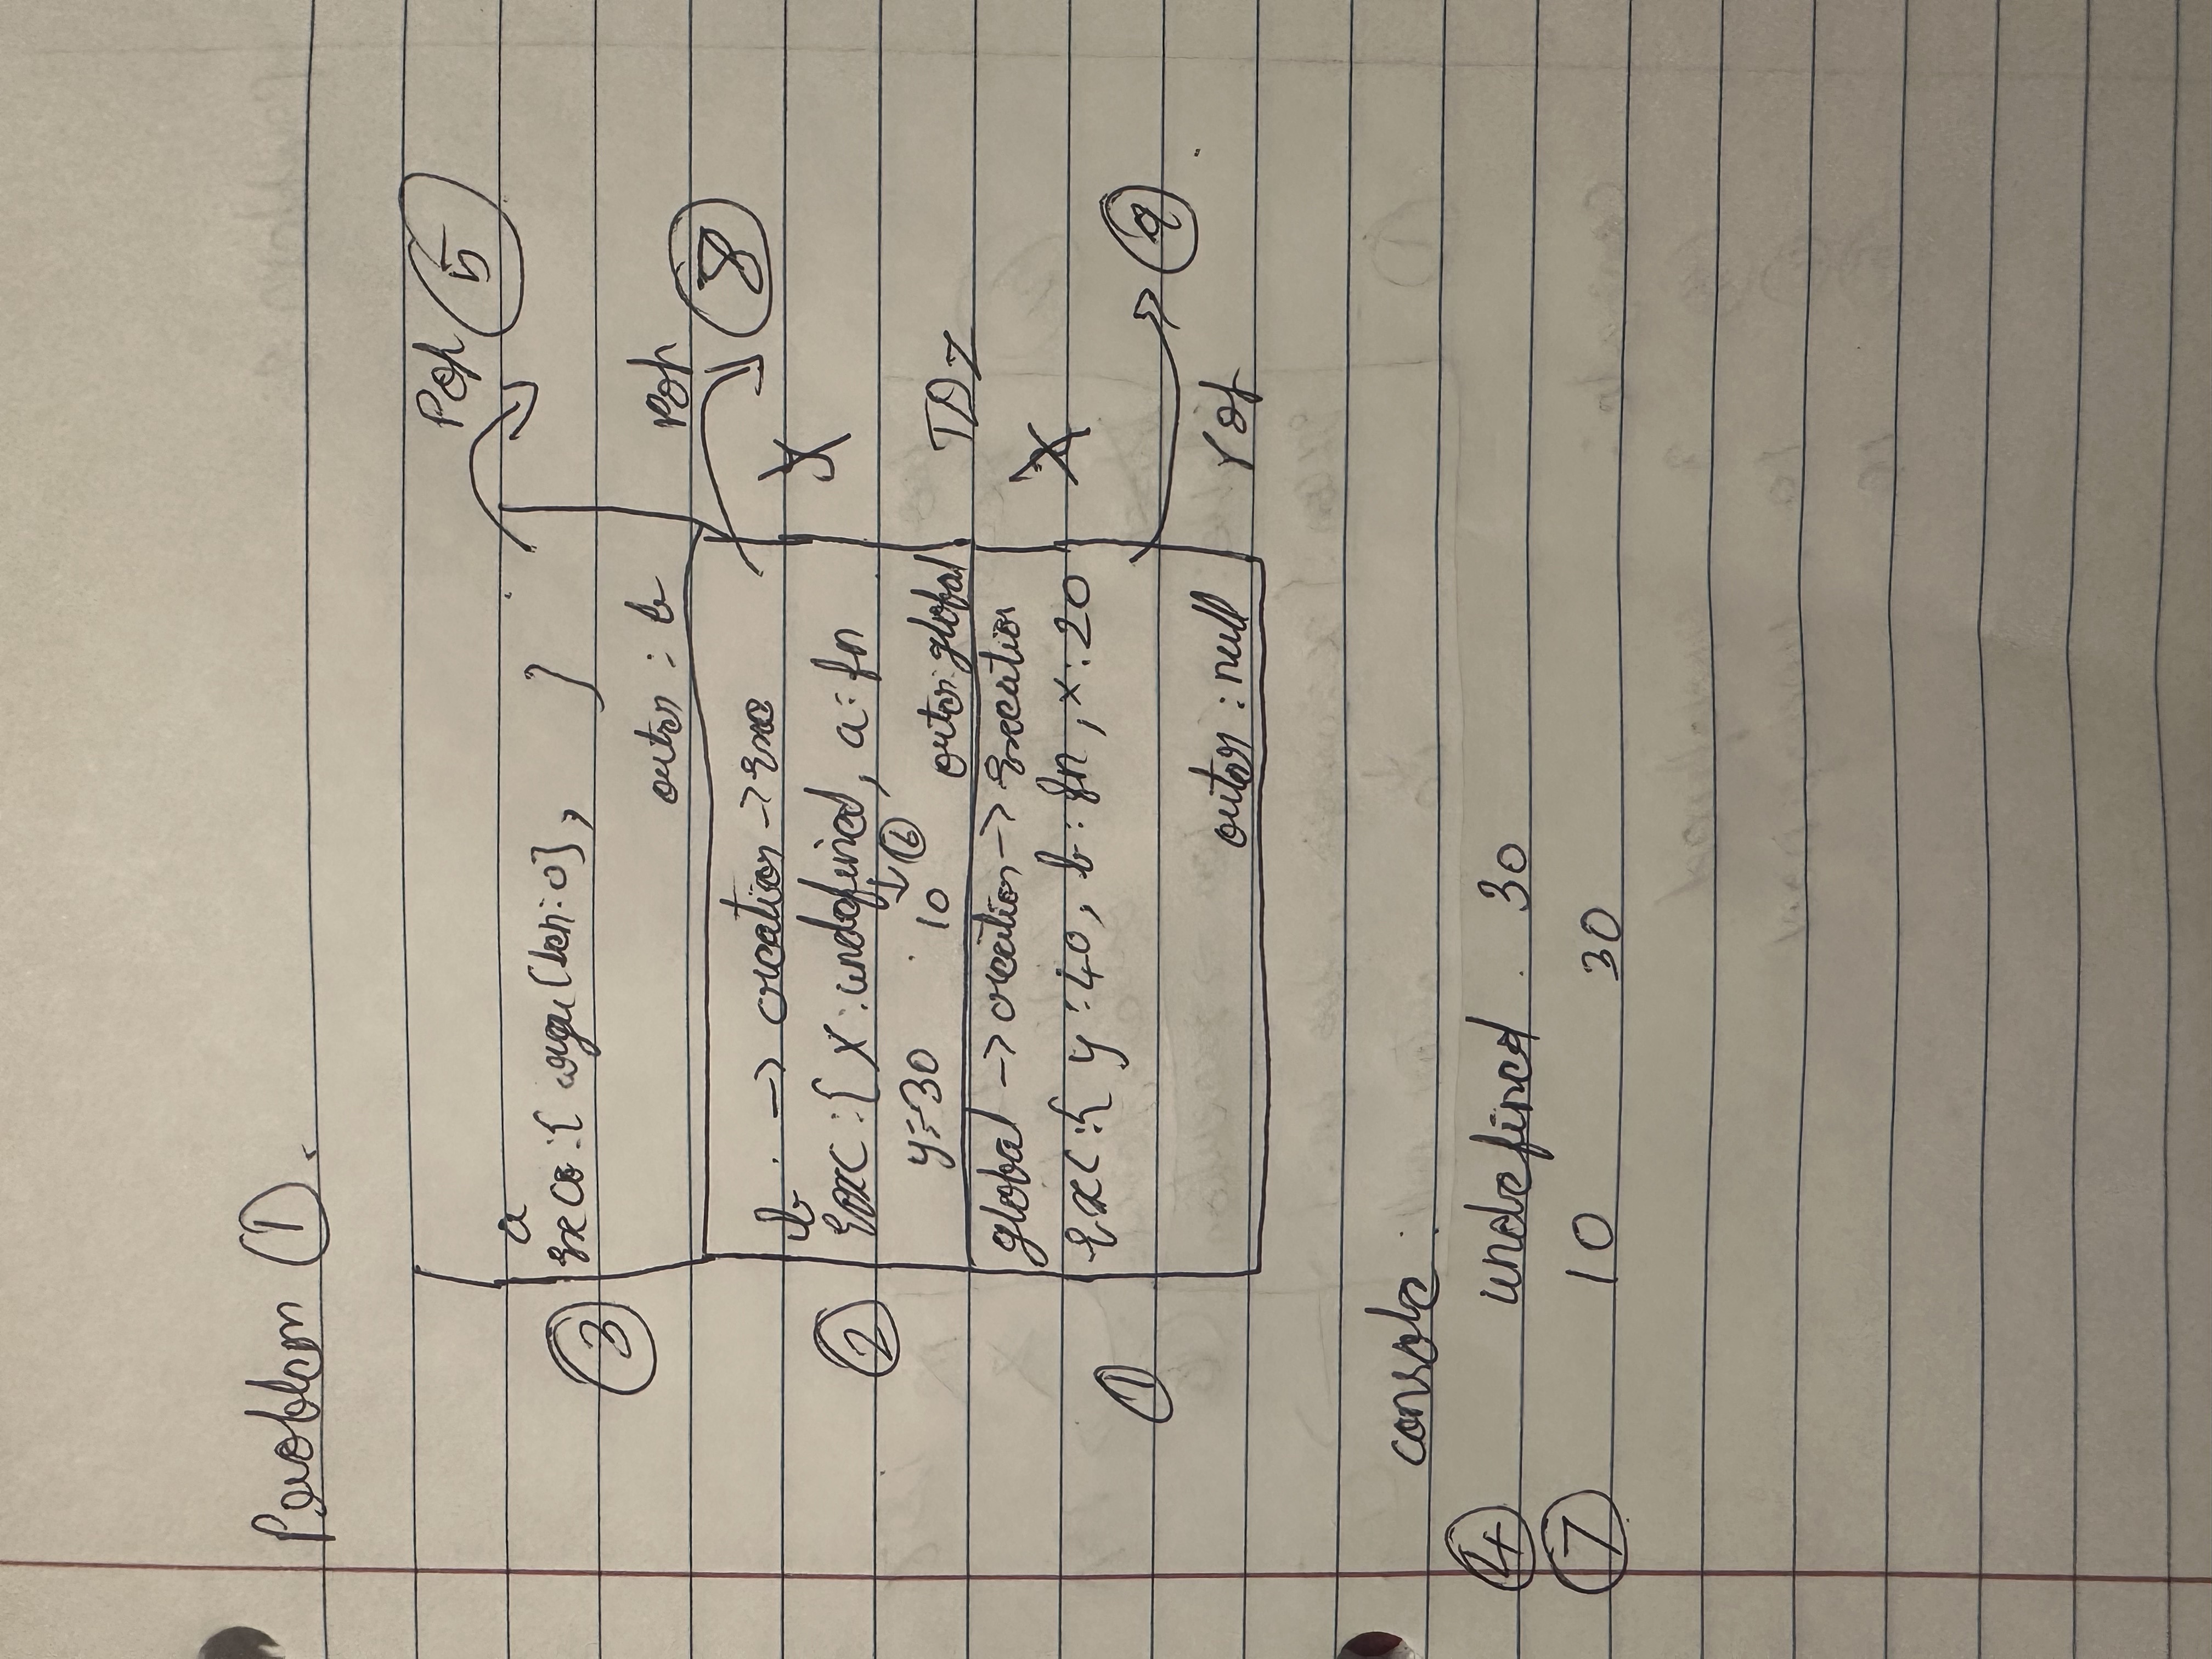 Problem ①.
Pop ⑤
a
③ exco : { argu [len : 0], }
outer : b
Pop ⑧
b . -> creation -> Exc
② exc : { x : undefined, a : fn
↓ ⑥
y : 30 10 outer : global TDZ
global -> creation -> Execution
exc : { y : 40, b : fn , x : 20
① ⑨
outer : null Pop
console :
④ undefined . 30
⑦ 10 30